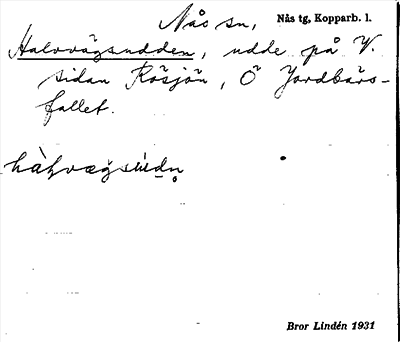 Nås sn, Nås tg, Kopparb. l.
Halvvägsudden, udde på V.
sidan Rösjön, Ö Jordbärs-
fallet.
hàḷvægsúdn̥
Bror Lindén 1931